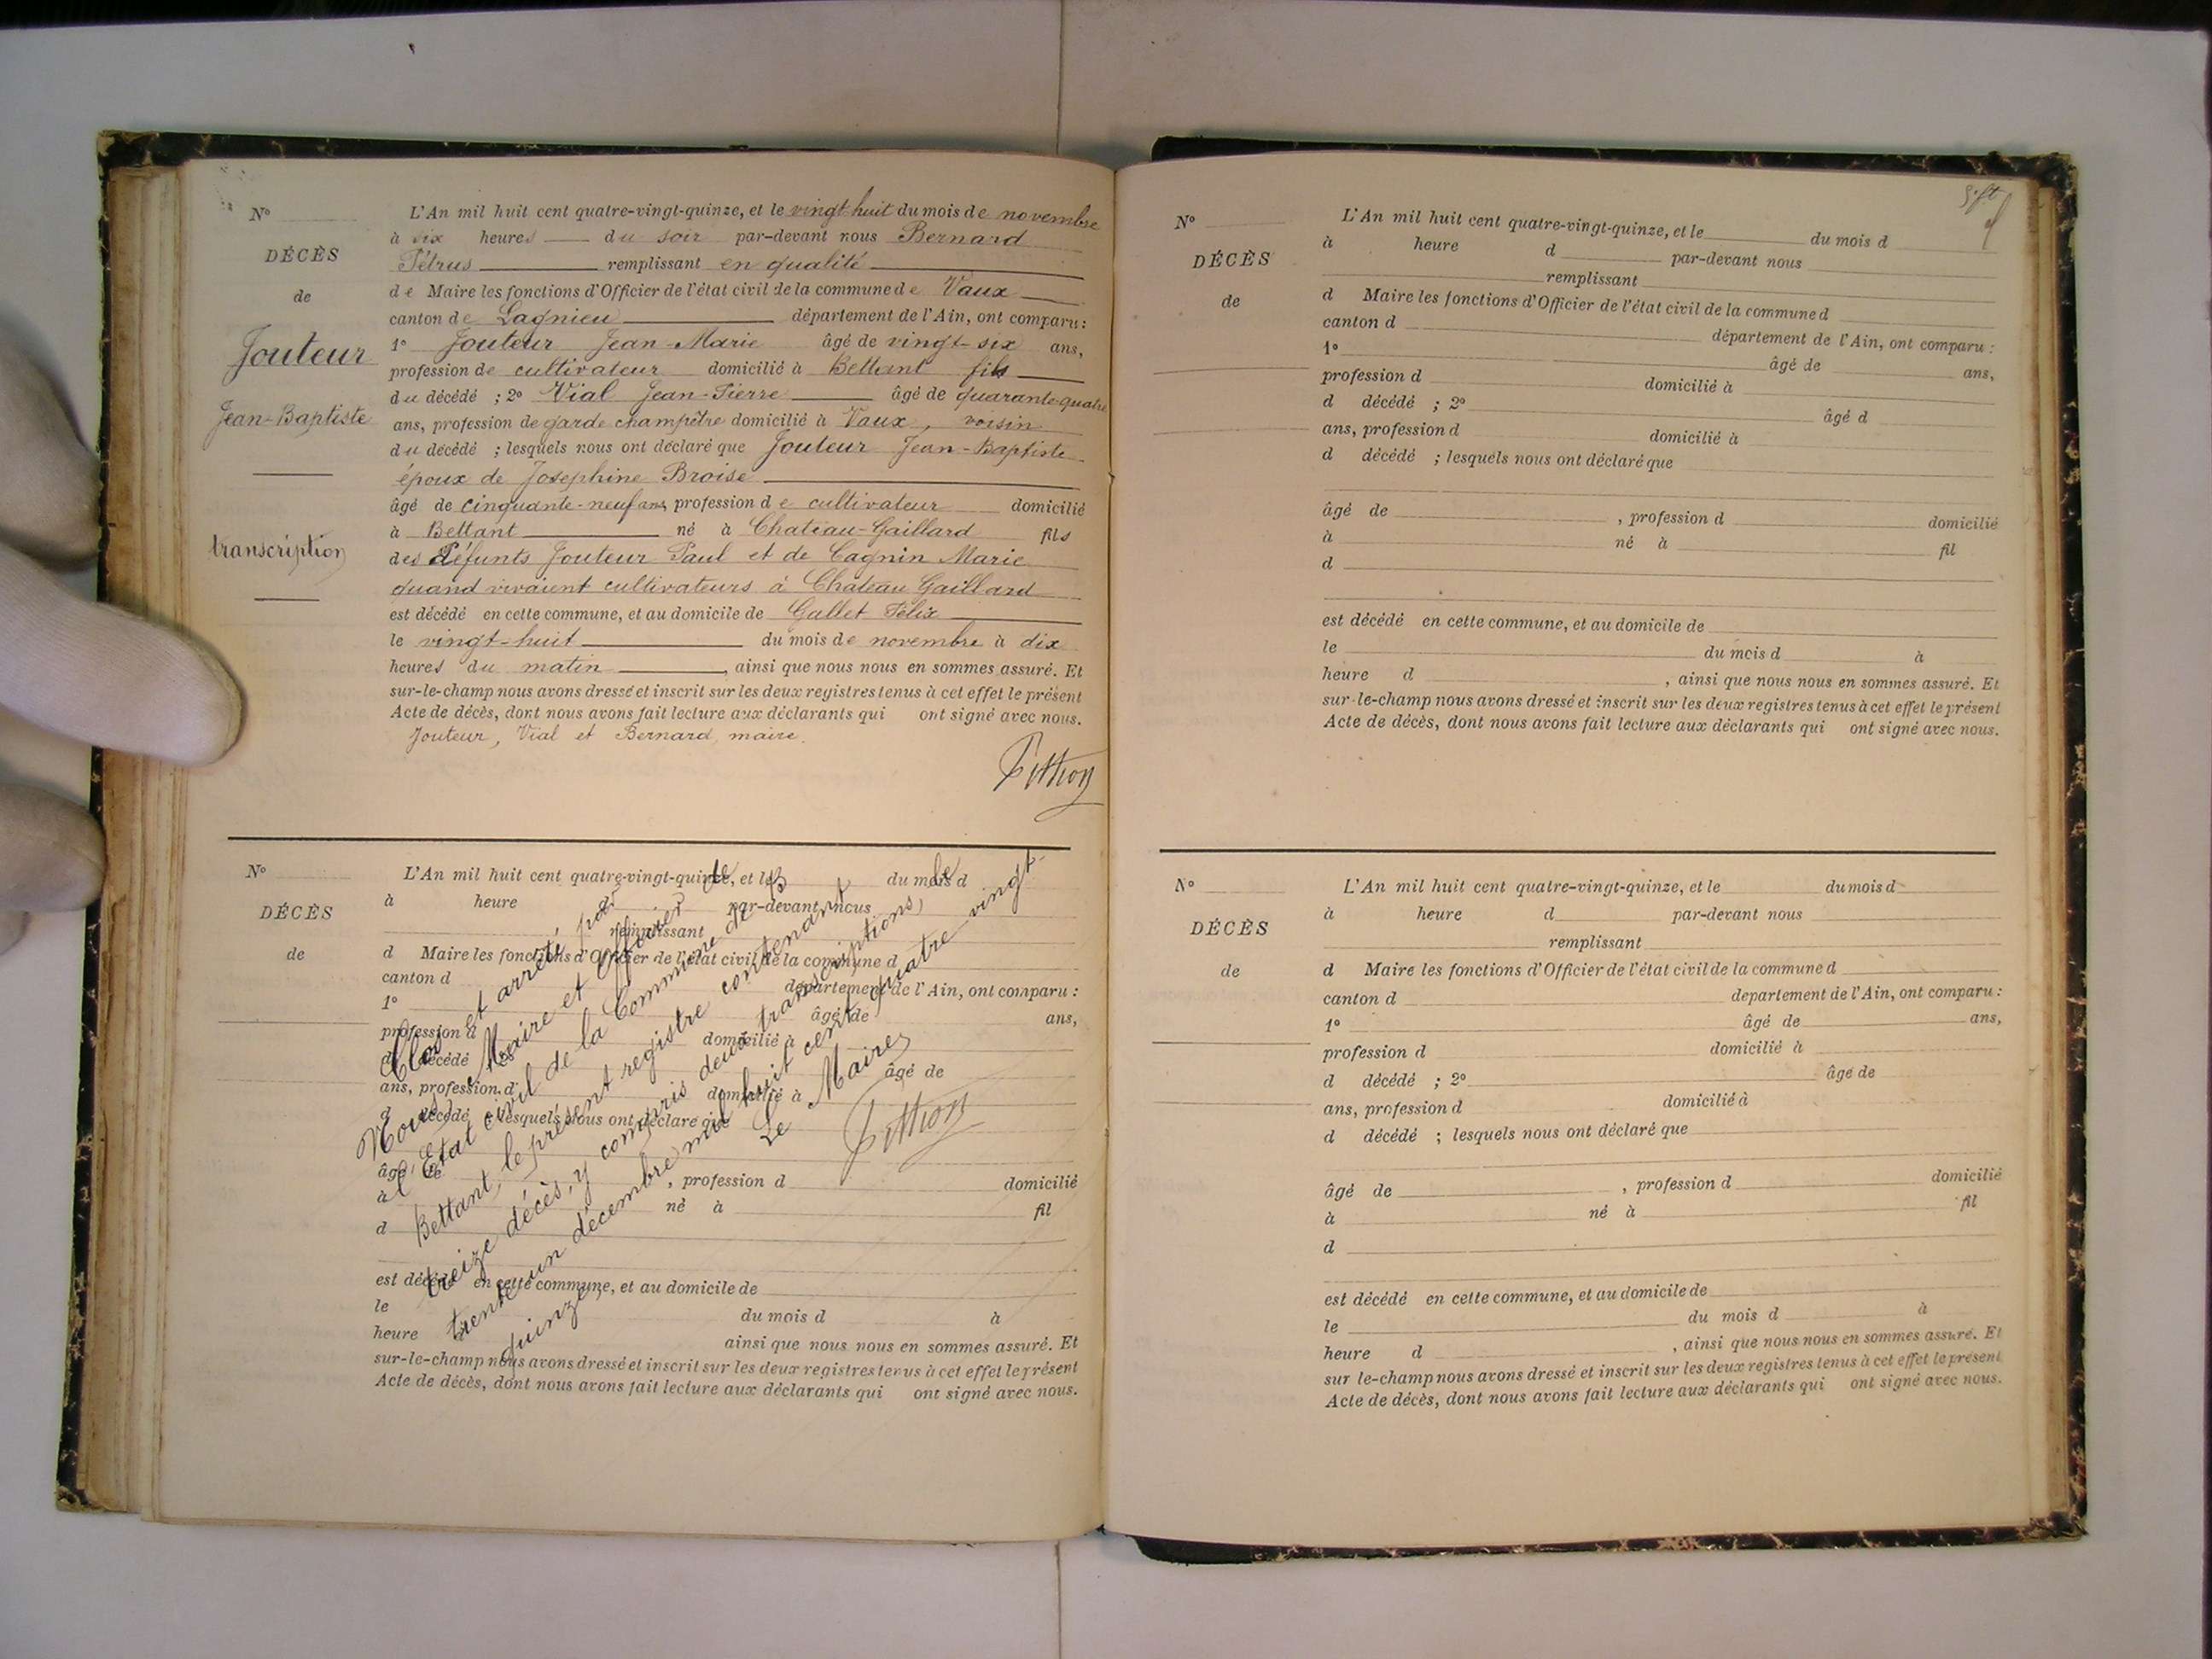 N° L'An mil huit cent quatre-vingt-quinze, et le vingt huit du mois de novembre
DÉCÈS
de
Jouteur
Jean-Baptiste
transcription
à six heures du soir par-devant nous Bernard
Pétrus remplissant en qualité
de Maire les fonctions d'Officier de l'état civil de la commune de Vaux
canton de Lagnieu département de l'Ain, ont comparu :
1° Jouteur Jean-Marie âgé de vingt-six ans,
profession de cultivateur domicilié à Bettant fils
du décédé ; 2° Vial Jean-Pierre âgé de quarante-quatre
ans, profession de garde champêtre domicilié à Vaux, voisin
du décédé ; lesquels nous ont déclaré que Jouteur Jean-Baptiste
époux de Josephine Broise
âgé de cinquante-neuf ans, profession de cultivateur domicilié
à Bettant né à Chateau-Gaillard fils
des défunts Jouteur Paul et de Cagnin Marie
quand vivaient cultivateurs à Château Gaillard
est décédé en cette commune, et au domicile de Gallet Félix
le vingt-huit du mois de novembre à dix
heures du matin, ainsi que nous nous en sommes assuré. Et
sur-le-champ nous avons dressé et inscrit sur les deux registres tenus à cet effet le présent
Acte de décès, dont nous avons fait lecture aux déclarants qui ont signé avec nous.
Jouteur, Vial et Bernard, maire.
N° L'An mil huit cent quatre-vingt-quinze, et le du mois d
DÉCÈS
de
à heure d par-devant nous
remplissant
d Maire les fonctions d'Officier de l'état civil de la commune d
canton d département de l'Ain, ont comparu :
1° âgé de ans,
profession d domicilié à
d décédé ; 2° âgé de
ans, profession d domicilié à
d décédé ; lesquels nous ont déclaré que
âgé de , profession d domicilié
à né à fil
d
est décédé en cette commune, et au domicile de
le du mois d à
heure ainsi que nous nous en sommes assuré. Et
sur-le-champ nous avons dressé et inscrit sur les deux registres tenus à cet effet le présent
Acte de décès, dont nous avons fait lecture aux déclarants qui ont signé avec nous.
Clos et arrêté par
Nous, Maire et Officier de
l'Etat civil de la Commune de
Bettant, le présent registre contenant
treize décès, y compris deux transcriptions, le
trente un décembre mil huit cent quatre vingt-
quinze.
Le Maire
N° L'An mil huit cent quatre-vingt-quinze, et le du mois d
DÉCÈS
de
à heure d par-devant nous
remplissant
d Maire les fonctions d'Officier de l'état civil de la commune d
canton d département de l'Ain, ont comparu :
1° âgé de ans,
profession d domicilié à
d décédé ; 2° âgé d
ans, profession d domicilié à
d décédé ; lesquels nous ont déclaré que
âgé de , profession d domicilié
à né à fil
d
est décédé en cette commune, et au domicile de
le du mois d à
heure d , ainsi que nous nous en sommes assuré. Et
sur-le-champ nous avons dressé et inscrit sur les deux registres tenus à cet effet le présent
Acte de décès, dont nous avons fait lecture aux déclarants qui ont signé avec nous.
N° L'An mil huit cent quatre-vingt-quinze, et le du mois d
DÉCÈS
de
à heure d par-devant nous
remplissant
d Maire les fonctions d'Officier de l'état civil de la commune d
canton d departement de l'Ain, ont comparu :
1° âgé de ans,
profession d domicilié à
d décédé ; 2° âge de
ans, profession d domicilié à
d décédé ; lesquels nous ont déclaré que
âgé de , profession d domicilié
à né à fil
d
est décédé en cette commune, et au domicile de
le du mois d à
heure d , ainsi que nous nous en sommes assuré. Et
sur le-champ nous avons dressé et inscrit sur les deux registres tenus à cet effet le présent
Acte de décès, dont nous avons fait lecture aux déclarants qui ont signé avec nous.